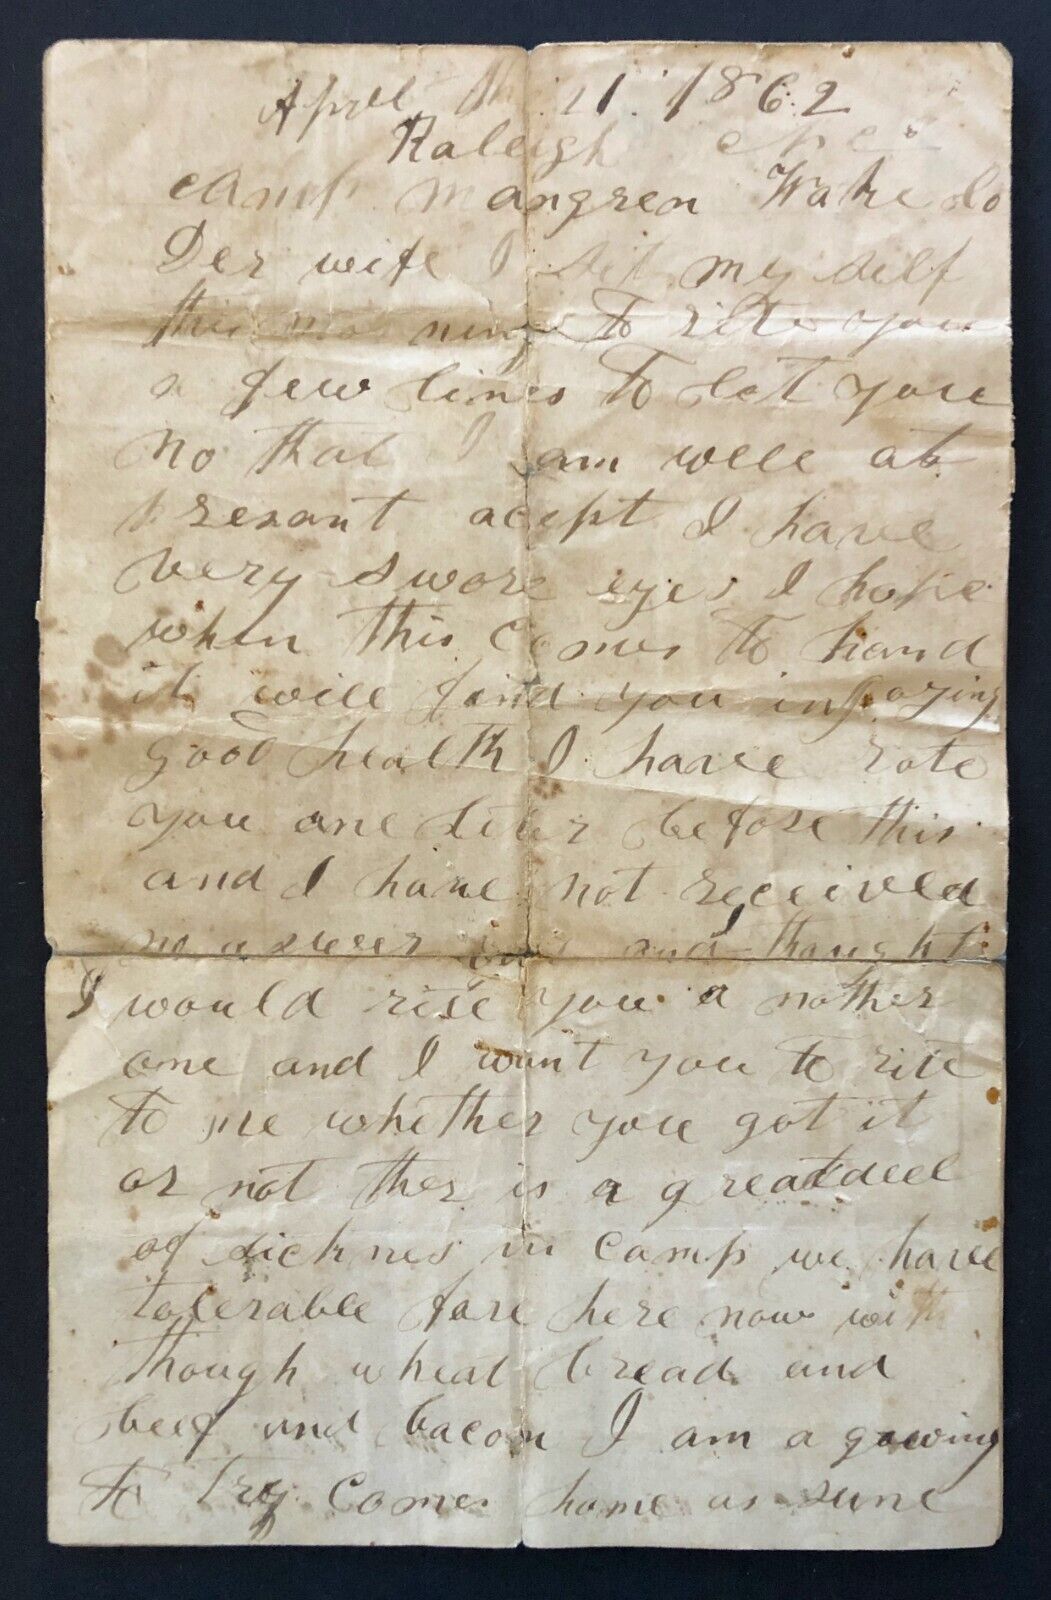 Aprel the 21 1862
Raleigh N C
camp mangren Wake Co
Der wife I sit my self
this mor ning to rite you
a few lines to let you
no that I am well at
presant acept I have
very swore eyes I hope
when this comes to hand
it will find you injoying
good health I have rote
you one leter before this
and I have not received
no answer and I thought
I would rite you a nother
one and I want you to rite
to me whether you got it
or not ther is a great deel
of sicknes in camp we have
tolerable fare here now with
though wheat bread and
beef and bacon I am a gowing
to try come home as sune